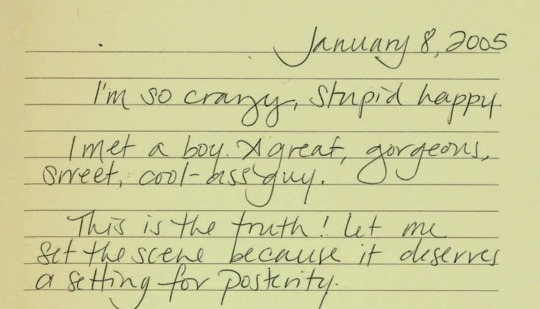 January 8, 2005
I'm so crazy, stupid happy.
I met a boy. A great, gorgeous,
sweet, cool-ass guy.
This is the truth! Let me
set the scene because it deserves
a setting for posterity.